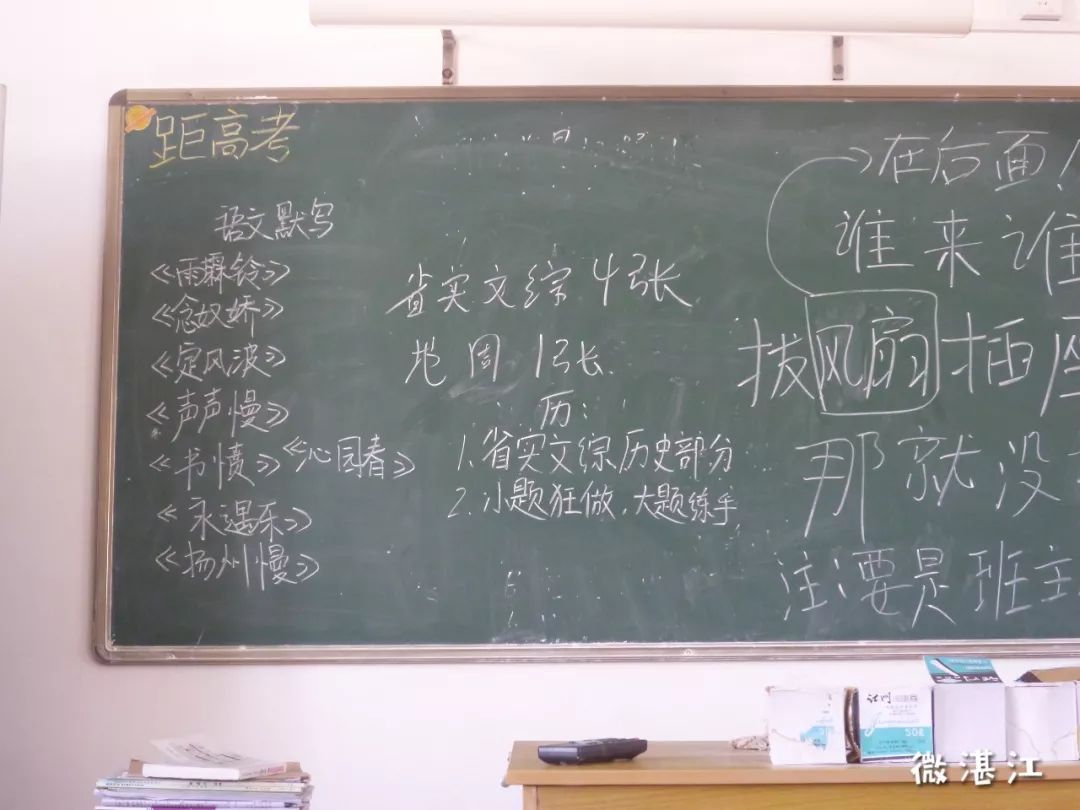 距高考
语文默写
《雨霖铃》
《念奴娇》
《定风波》
《声声慢》
《书愤》《沁园春》
《永遇乐》
《扬州慢》
省实文综4张
地周1张
历:
1.省实文综历史部分
2.小题狂做,大题练手
在后面
谁来谁
拨风扇插座
那就没
主要是班主
50g
微湛江